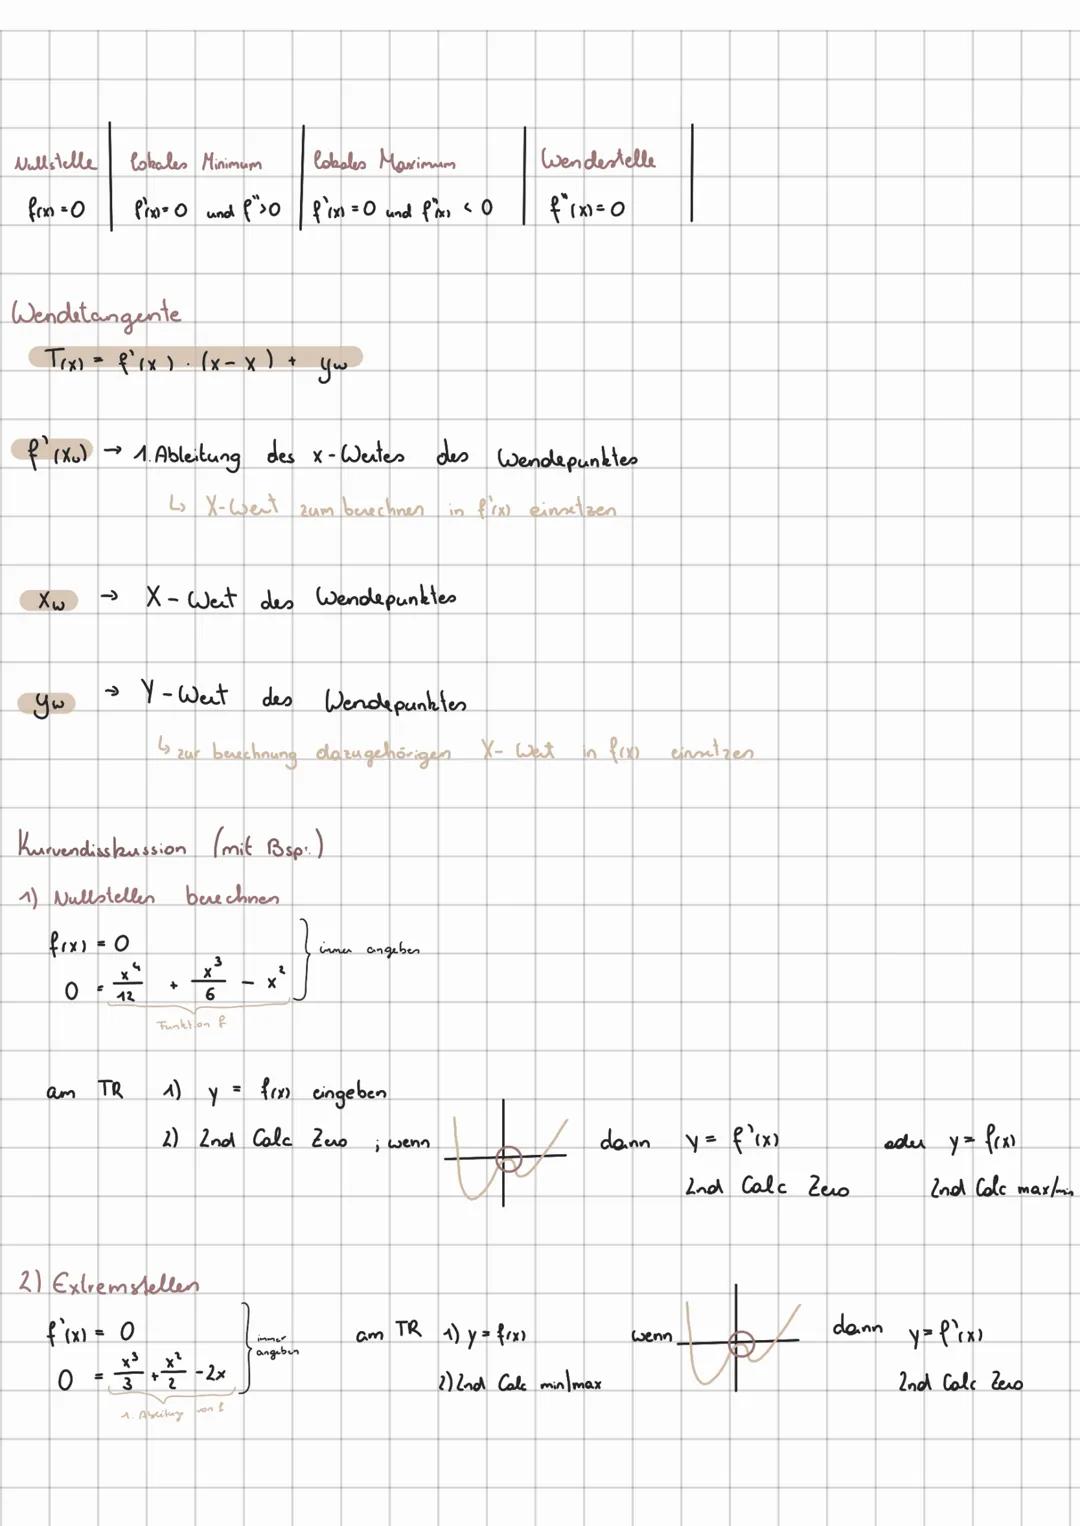 Nullstelle | lokales Minimum | lokales Maximum | Wendestelle
f(x) = 0 | f'(x) = 0 und f''>0 | f'(x) = 0 und f''(x) < 0 | f''(x) = 0
Wendetangente
T(x) = f'(x ) · (x - x ) + yw
f'(xw) → 1. Ableitung des x-Wertes des Wendepunktes
↳ X-Wert zum berechnen in f'(x) einsetzen
xw → X-Wert des Wendepunktes
yw → Y-Wert des Wendepunktes
↳ zur berechnung dazugehörigen X-Wert in f(x) einsetzen
Kurvendisskussion (mit Bsp.)
1) Nullstellen berechnen
f(x) = 0
immer angeben
0 = x⁴/12 + x³/6 - x²
Funktion f
am TR 1) y = f(x) eingeben
2) 2nd Calc Zero ; wenn dann y = f'(x) oder y = f(x)
2nd Calc Zero 2nd Calc max/min
2) Extremstellen
f'(x) = 0 immer angeben am TR 1) y = f(x) wenn dann y = f'(x)
0 = x³/3 + x²/2 - 2x 2) 2nd Calc min/max 2nd Calc Zero
1. Ableitung von f